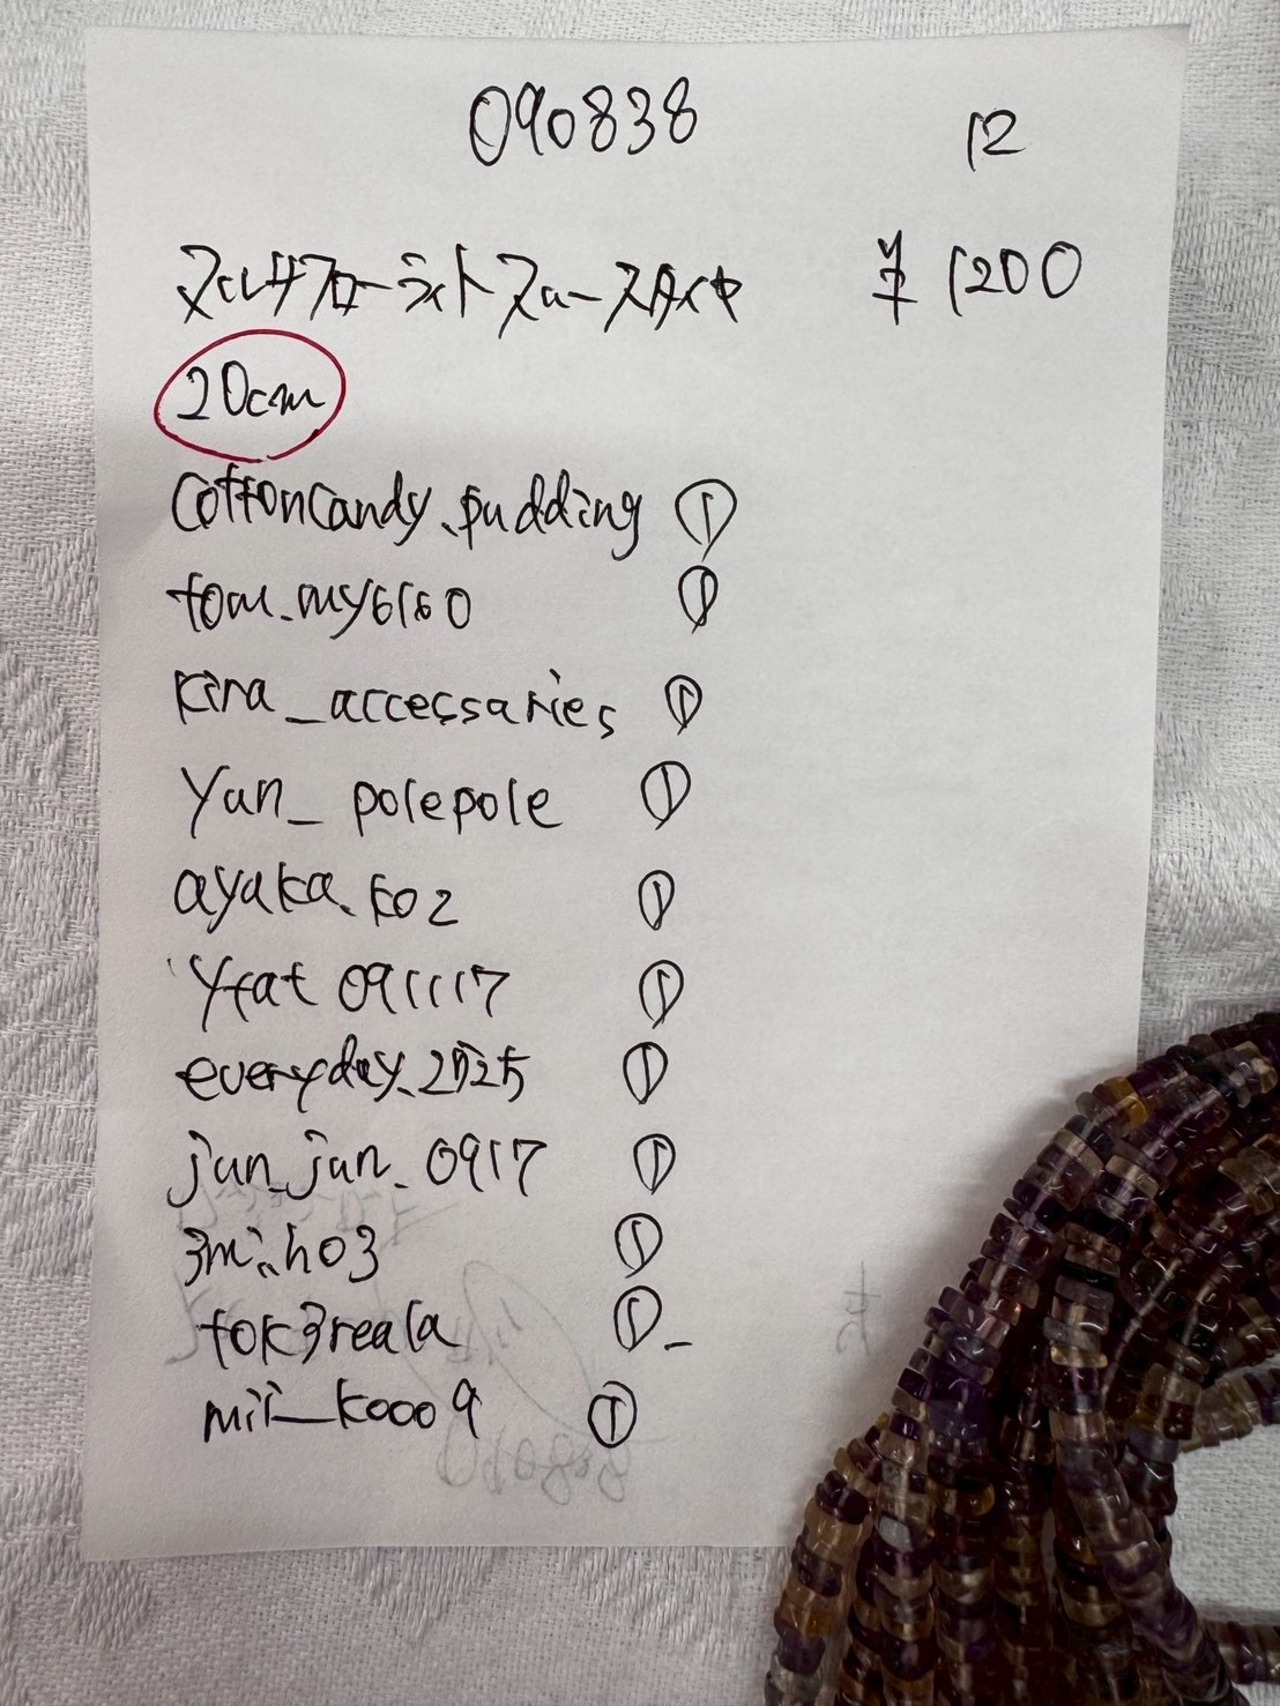 090838 12
マルチフローライト スムースタイヤ ¥1200
20cm
cottoncandy.pudding ①
tom.my6160 ①
kira_accessaries ①
yun_polepole ①
ayaka.ko2 ①
yfat091117 ①
everyday.2525 ①
jun_jun_0917 ①
3mi.ho3 ①
tok3reala ①
mii_kooo9 ①